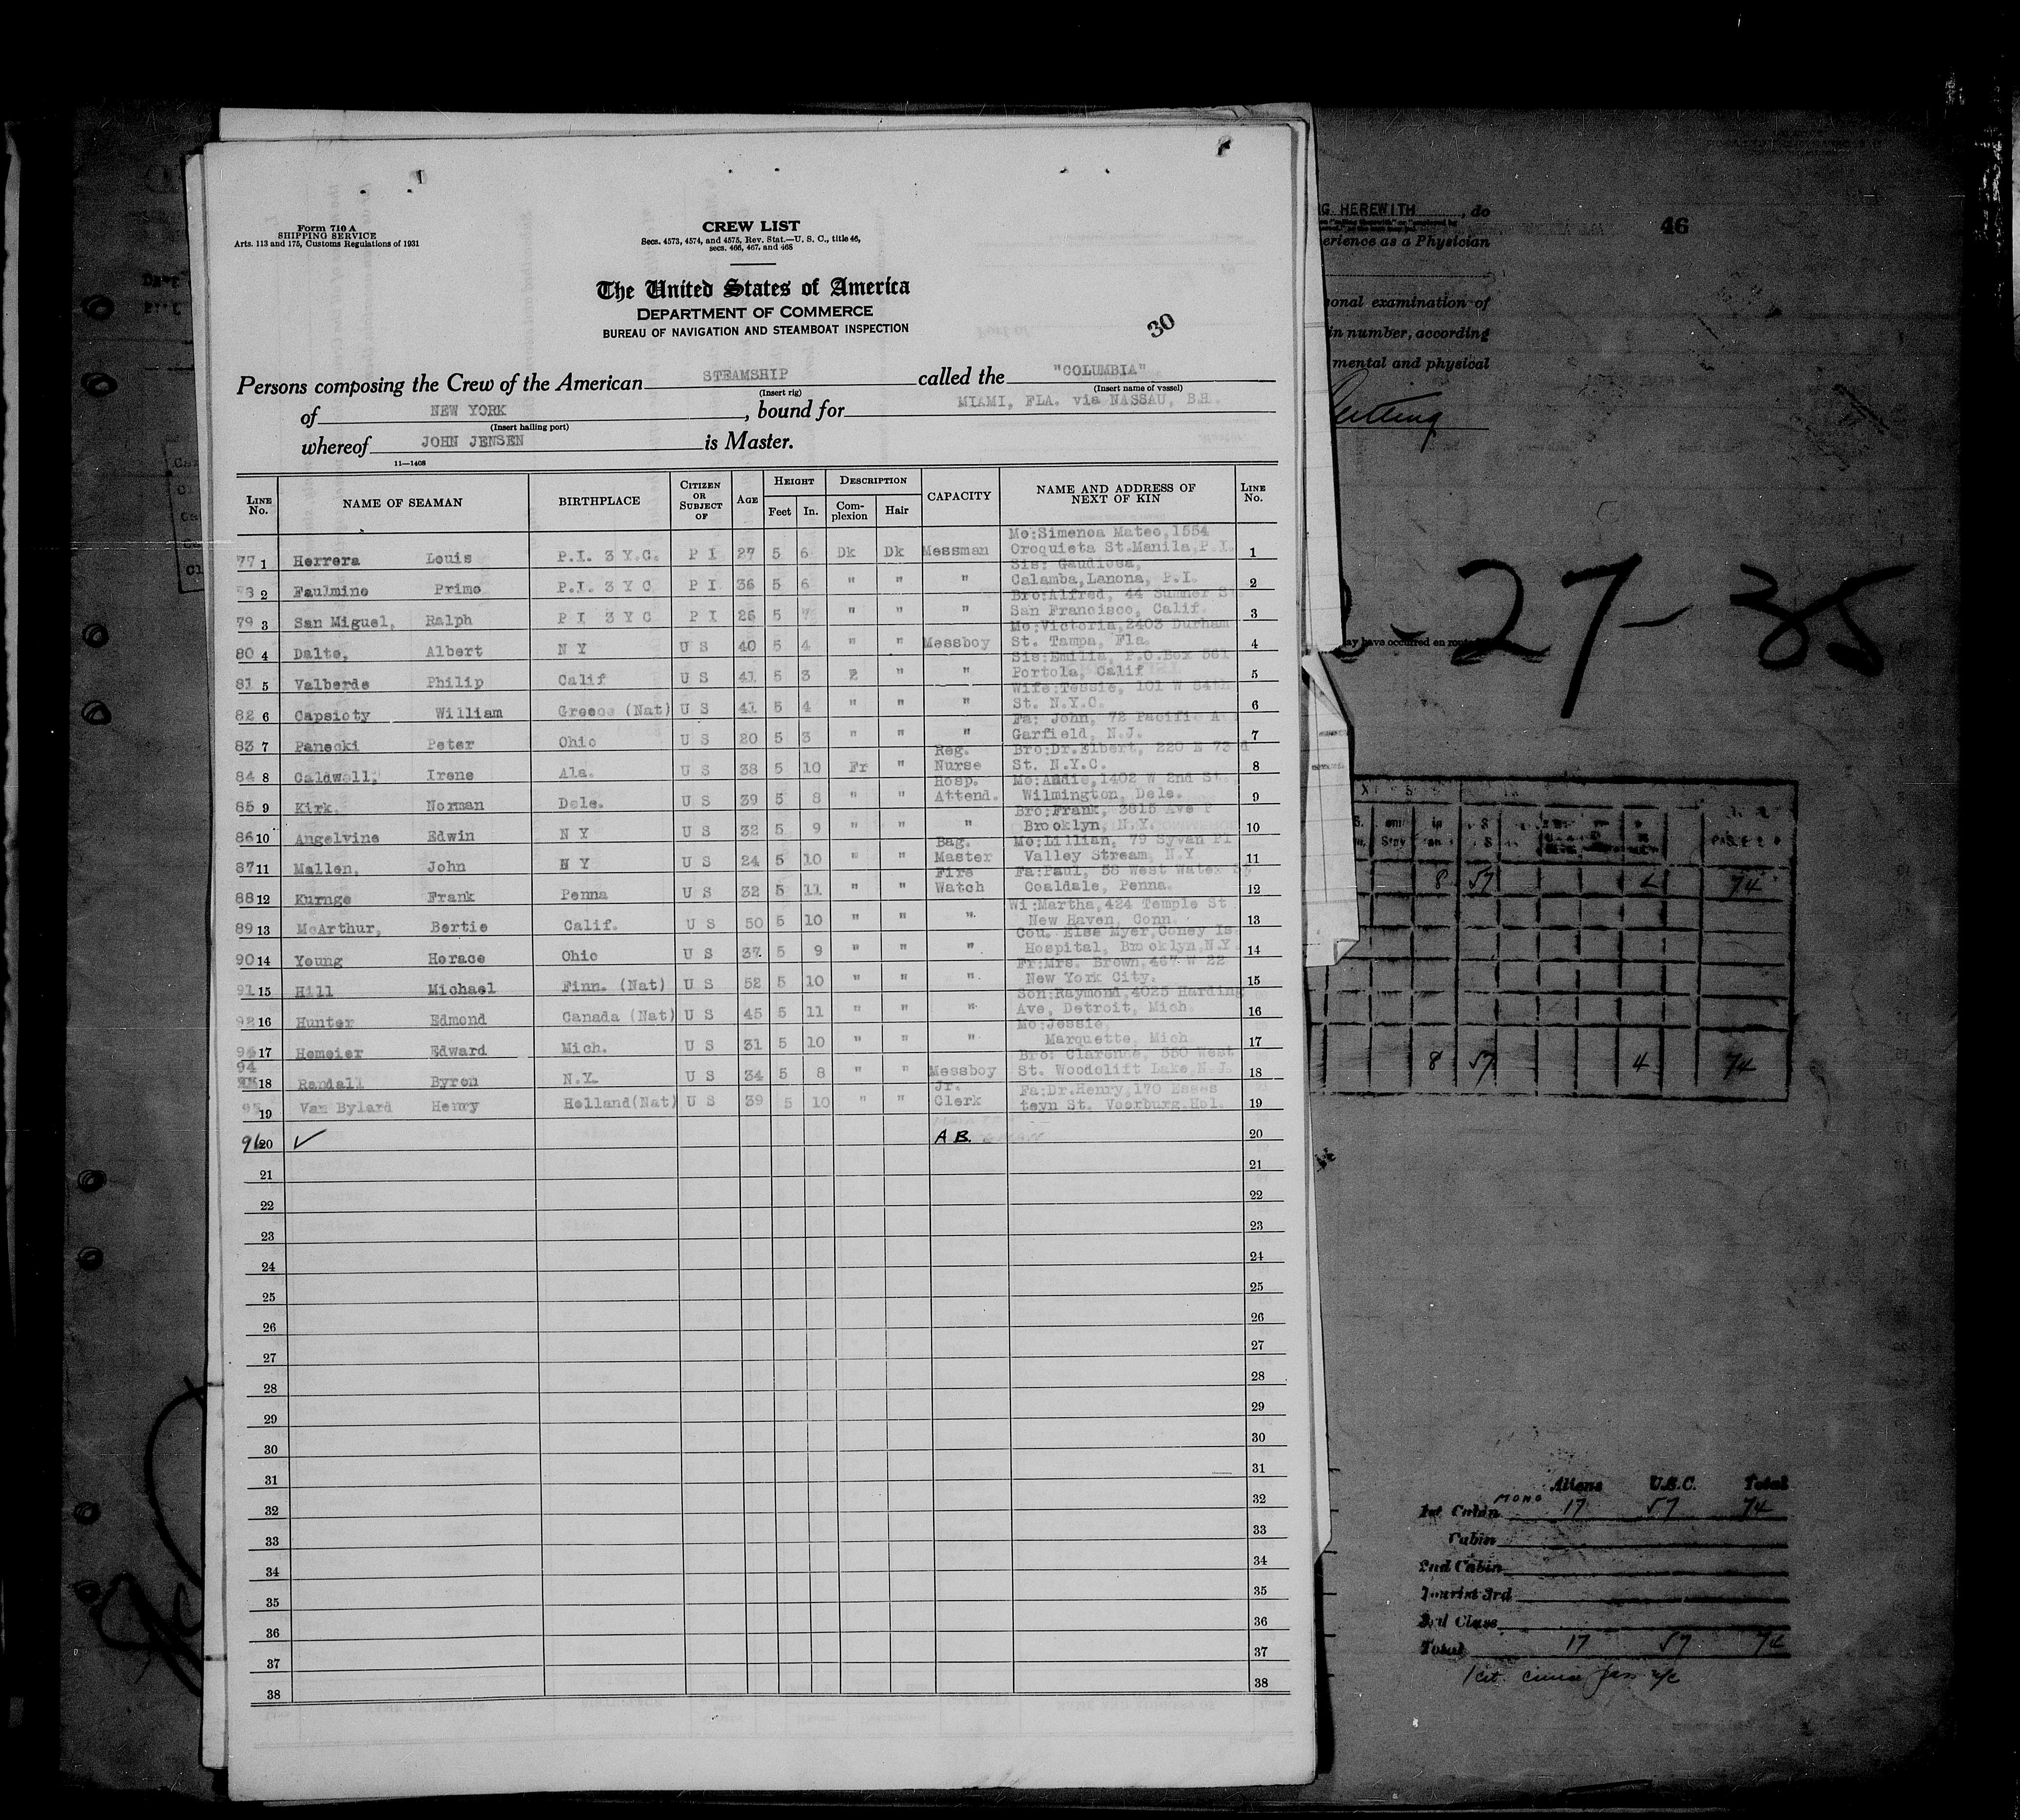 Form 710 A
SHIPPING SERVICE
Arts. 113 and 175, Customs Regulations of 1931
CREW LIST
Secs. 4573, 4574, and 4575, Rev. Stat.—U. S. C., title 46,
secs. 466, 467, and 468
The United States of America
DEPARTMENT OF COMMERCE
BUREAU OF NAVIGATION AND STEAMBOAT INSPECTION
30
Persons composing the Crew of the American STEAMSHIP called the "COLUMBIA"
(Insert rig) (Insert name of vessel)
of NEW YORK, bound for MIAMI, FLA. via NASSAU, B.H.
(Insert hailing port)
whereof JOHN JENSEN is Master.
11—1408
LINE No. NAME OF SEAMAN BIRTHPLACE CITIZEN OR SUBJECT OF AGE HEIGHT Feet In. DESCRIPTION Complexion Hair CAPACITY NAME AND ADDRESS OF NEXT OF KIN LINE No.
77 1 Herrera Louis P.I. 3 Y.C. P I 27 5 6 Dk Dk Messman Mo:Simenoa Mateo,1554 Oroquieta St.Manila,P.I. 1
78 2 Faulmino Primo P.I. 3 Y C P I 36 5 6 " " " Sis: Gaudiosa, Calamba,Lanona, P.I. 2
79 3 San Miguel, Ralph P I 3 Y C P I 26 5 7 " " " Bro:Alfred, 44 Sumner S San Francisco, Calif. 3
80 4 Dalto, Albert N Y U S 40 5 4 " " Messboy Mo:Victoria,2403 Durham St. Tampa, Fla. 4
81 5 Valberde Philip Calif U S 41 5 3 " " Sis:Emilia, P.O.Box 561 Portola, Calif 5
82 6 Capsioty William Greece (Nat) U S 41 5 4 " " " Wife:Tessie, 101 W 84th St. N.Y.C. 6
83 7 Panecki Peter Ohio U S 20 5 3 " " " Fa: John, 72 Pacific A Garfield, N.J. 7
84 8 Caldwell, Irene Ala. U S 38 5 10 Fr " Reg. Nurse Bro:Dr.Elbert, 220 E 73 d St. N.Y.C. 8
85 9 Kirk, Norman Dele. U S 39 5 8 " " Hosp. Attend. Mo:Addie,1402 W 2nd St. Wilmington, Dele. 9
86 10 Angelvine Edwin N Y U S 32 5 9 " " " Bro:Frank, 3815 Ave P Brooklyn, N.Y. 10
87 11 Mallen, John N Y U S 24 5 10 " " Bag. Master Mo:Lillian, 79 Syvan Pl Valley Stream, N.Y 11
88 12 Kurnge Frank Penna U S 32 5 11 " " Fire Watch Fa:Paul, 58 West Water Coaldale, Penna. 12
89 13 McArthur, Bertie Calif. U S 50 5 10 " " " Wi:Martha,424 Temple St New Haven, Conn. 13
90 14 Young Horace Ohio U S 37 5 9 " " " Cou. Else Myer,Coney Is. Hospital, Brooklyn,N.Y. 14
91 15 Hill Michael Finn. (Nat) U S 52 5 10 " " " Fr:Mrs. Brown,467 W 22 New York City. 15
92 16 Hunter Edmond Canada (Nat) U S 45 5 11 " " " Son:Raymond,4025 Harding Ave, Detroit, Mich. 16
17 Homeier Edward Mich. U S 31 5 10 " " " Mo:Jessie, Marquette, Mich 17
94 18 Randall Byron N.Y. U S 34 5 8 " " Messboy Bro: Clarence, 350 West St. Woodclift Lake,N.J. 18
95 19 Van Bylard Henry Holland(Nat) U S 39 5 10 " " Jr. Clerk Fa:Dr.Henry,170 Esses teyn St. Voorburg.Hol. 19
96 20 ✓ A B. 20
21 21
22 22
23 23
24 24
25 25
26 26
27 27
28 28
29 29
30 30
31 31
32 32
33 33
34 34
35 35
36 36
37 37
38 38
HEREWITH, do
46
erience as a Physician
onal examination of
in number, according
mental and physical
-27-35
ay have occurred en
8 57 74
8 57 4 74
Aliens U.S.C. Total
1st Cabin MONO 17 57 74
Cabin
2nd Cabin
Tourist 3rd
3rd Class
Total 17 57 74